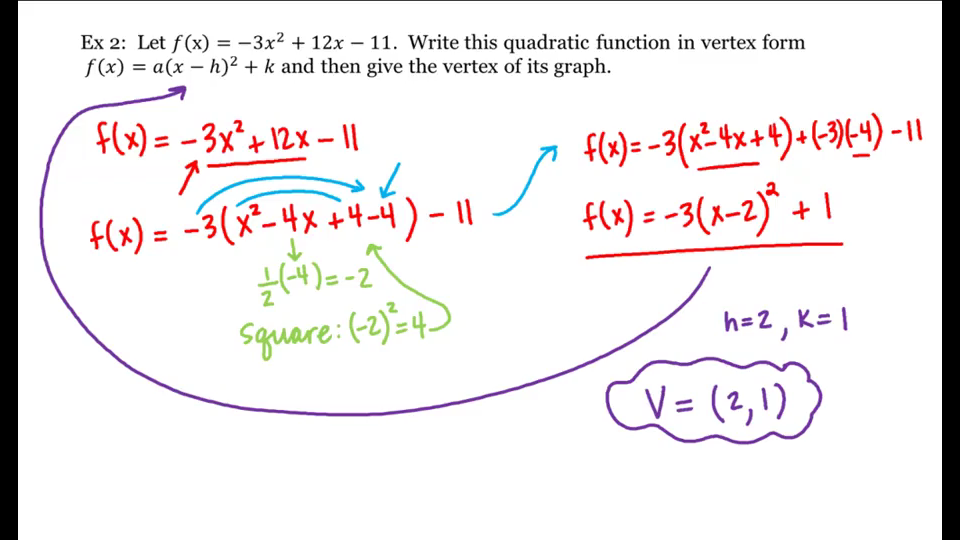 Ex 2: Let f(x) = −3x² + 12x − 11. Write this quadratic function in vertex form
f(x) = a(x − h)² + k and then give the vertex of its graph.
f(x) = −3x² + 12x − 11
f(x) = −3(x² − 4x + 4 − 4) − 11
½(−4) = −2
square: (−2)² = 4
f(x) = −3(x² − 4x + 4) + (−3)(−4) − 11
f(x) = −3(x − 2)² + 1
h = 2, k = 1
V = (2, 1)